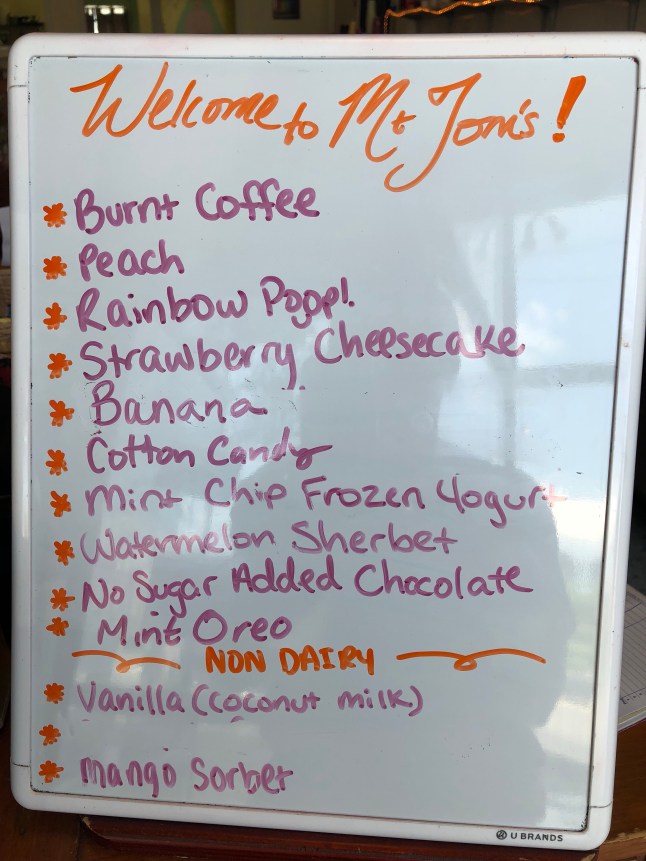 Welcome to Mt Tom's!
* Burnt Coffee
* Peach
* Rainbow Poop!
* Strawberry Cheesecake
* Banana
* Cotton Candy
* Mint Chip Frozen Yogurt
* Watermelon Sherbet
* No Sugar Added Chocolate
* Mint Oreo
NON DAIRY
* Vanilla (coconut milk)
*
* Mango Sorbet
U BRANDS